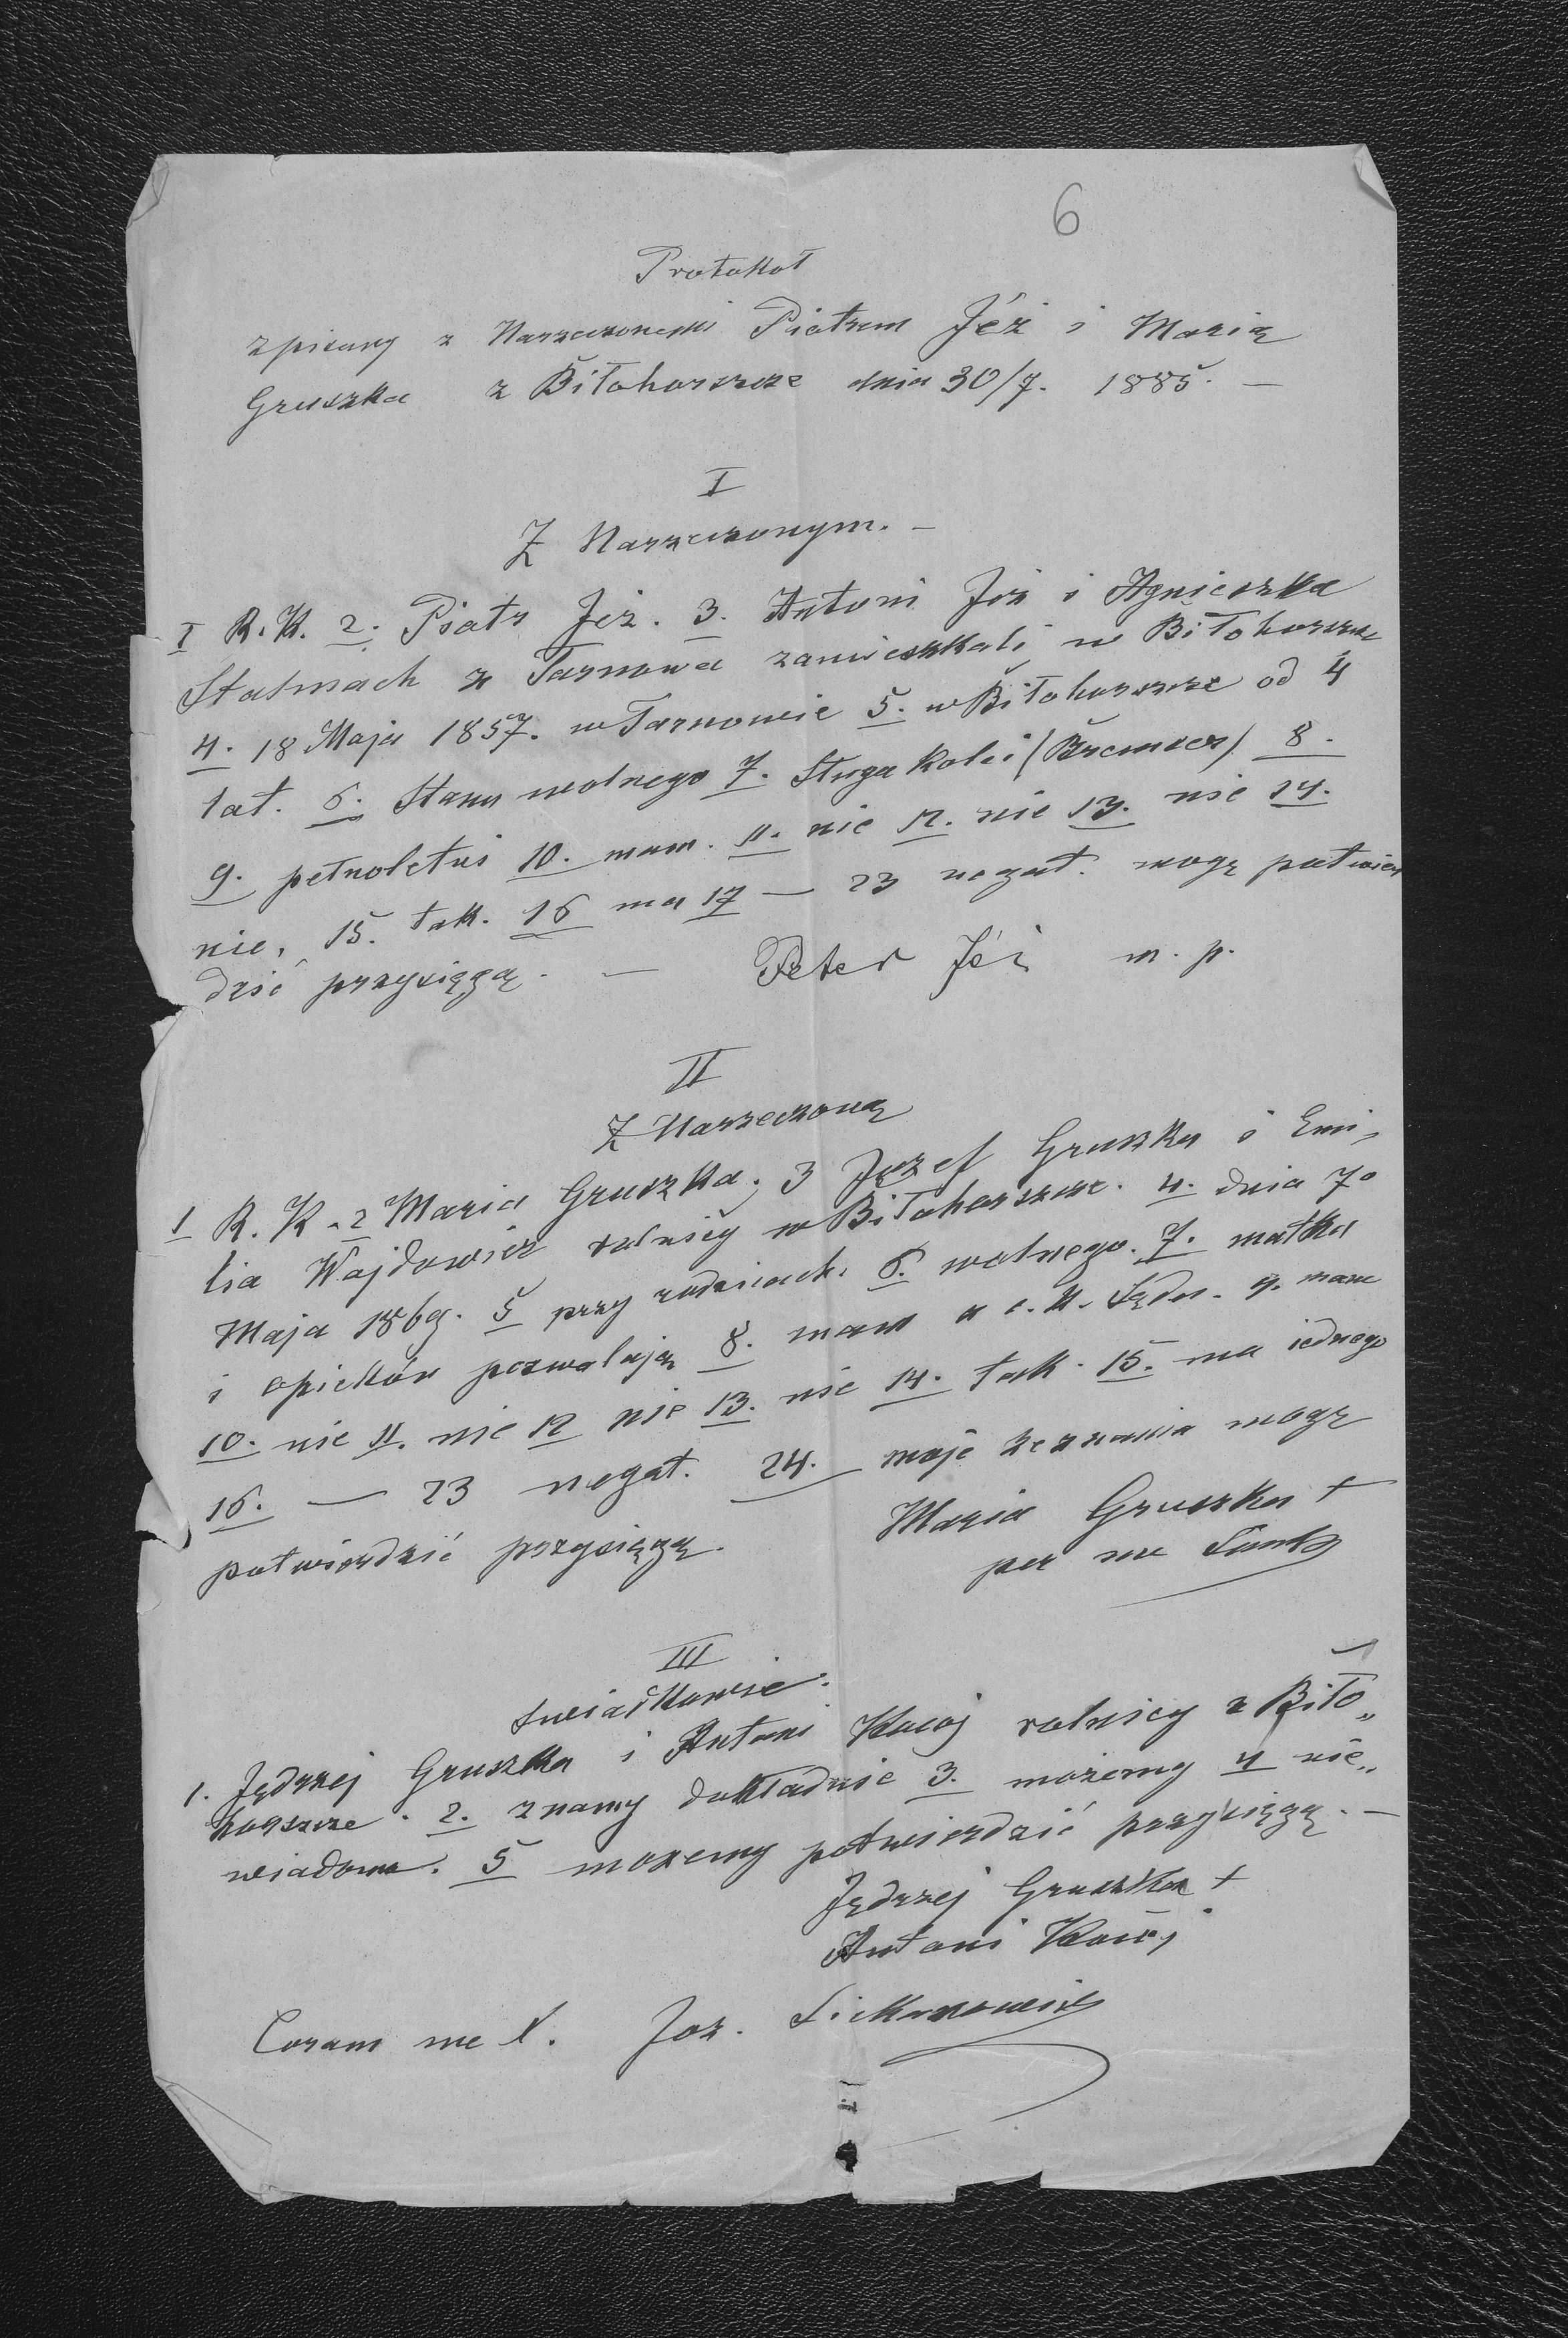 6
Protokoł
spisany z Narzeczonemi Piotrem Jéż i Marią
Gruszka z Biłohorszcze dnia 30/7. 1885. —
I
Z Narzeczonym. —
I R. K. 2. Piotr Jeż. 3. Antoni Jéż i Agnieszka
Stalmach z Tarnowa zamieszkali w Biłohorszcze
4. 18 Maja 1857. w Tarnowie 5. w Biłohorszcze od 4
lat. 6. Stanu wolnego 7. Sługa Kolei (Bremser) 8.
9. pełnoletni 10. mam. 11. nie 12. nie 13. nie 14.
nie, 15. tak. 16 ma 17 — 23 negat. mogę potwier
dzić przysięgą. — Peter Jéż m. p.
II
Z Narzeczoną
1 R. K. 2 Maria Gruszka; 3 Józef Gruszka i Emi,
lia Wajdowicz rolnicy w Biłohorszcze. 4. dnia 7o
Maja 1869. 5 przy rodzicach. 6. wolnego. 7. matka
i opiekun pozwalają 8. mam a c. k. Sądu. 9. mam
10. nie 11. nie 12 nie 13. nie 14. tak. 15. ma jednego
16. — 23 negat. 24. moje zeznania mogę
potwierdzić przysięgą. Maria Gruszka +
per me
III
Świadkowie.
1. Jędrzej Gruszka i Antoni Kocój rolnicy z Biło„
horszcze. 2. znamy dokładnie 3. możemy 4 nie„
wiadomo. 5 możemy potwierdzić przysięgą. —
Jędrzej Gruszka +
Antoni Kocój
Coram me X. Joz.